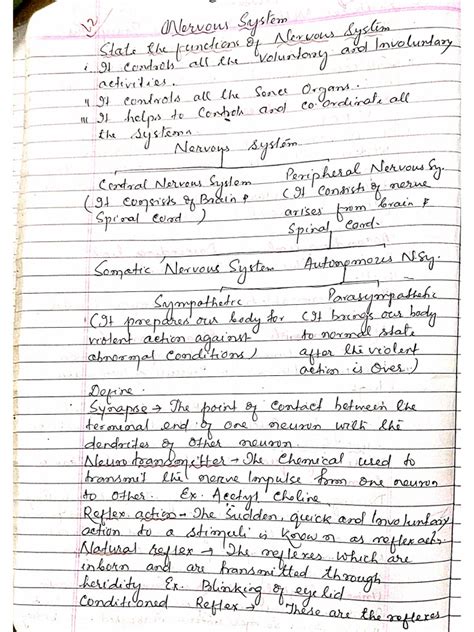 12
Nervous System
State the functions of Nervous System
i. It controls all the Voluntary and Involuntary
activities.
ii It controls all the Sense Organs.
iii It helps to Controls and co-ordinate all
the systems
Nervous System
Central Nervous System Peripheral Nervous Sy.
(It consists of Brain & (It Consists of nerve
Spinal Cord) arises from brain &
Spinal Cord.
Somatic Nervous System Autonomous N Sy.
Sympathetic Parasympathetic
(It prepares our body for (It brings our body
violent action against to normal state
abnormal conditions) after the violent
action is over)
Define.
Synapse → The point of contact between the
terminal end of one neuron with the
dendrites of other neuron.
Neurotransmitter → The Chemical used to
transmit the nerve impulse from one neuron
to other. Ex. Acetyl Choline
Reflex action → The Sudden, quick and Involuntary
action to a stimuli is known as reflex act
Natural reflex → The reflexes which are
inborn and are transmitted through
heridity Ex. Blinking of eye lid
Conditioned Reflex → These are the reflexes